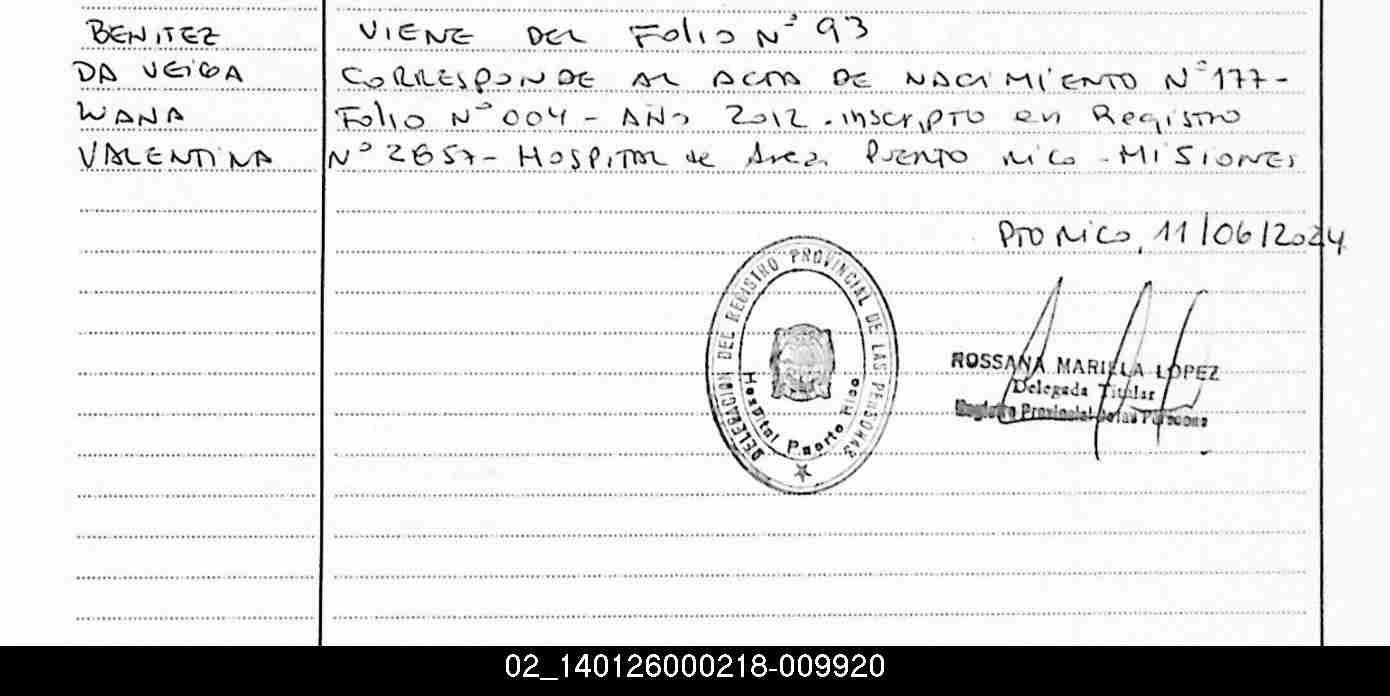 BENITEZ
DA VEIGA
WANA
VALENTINA
VIENE DEL FOLIO N° 93
CORRESPONDE AL ACTA DE NACIMIENTO N° 177-
Folio N° 004 - AÑO 2012. inscripto en Registro
N° 2657 - HOSPITAL de Area PUERTO RICO - MISIONES
PTO RICO, 11/06/2024
DELEGACION DEL REGISTRO PROVINCIAL DE LAS PERSONAS
Hospital Puerto Rico
ROSSANA MARIELA LOPEZ
Delegada Titular
Registro Provincial de las Personas
02_140126000218-009920